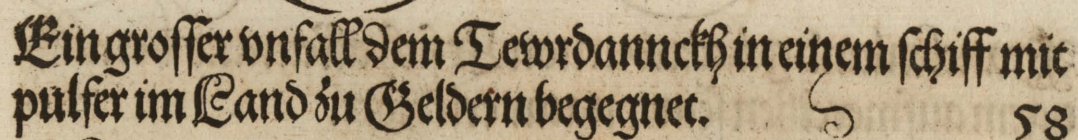 Ein grosser vnfall dem Tewrdannckh in einem schiff mit
pulfer im Land zu Geldern begegnet. 58